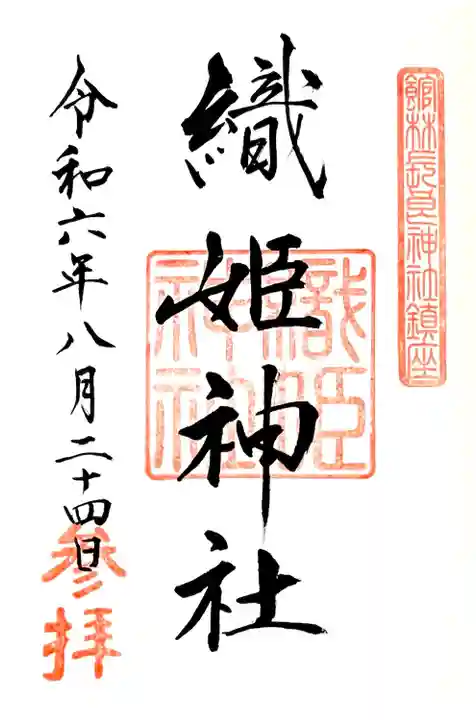 館林長良神社鎮座
織姫神社
織姫神社
令和六年八月二十四日
参拝